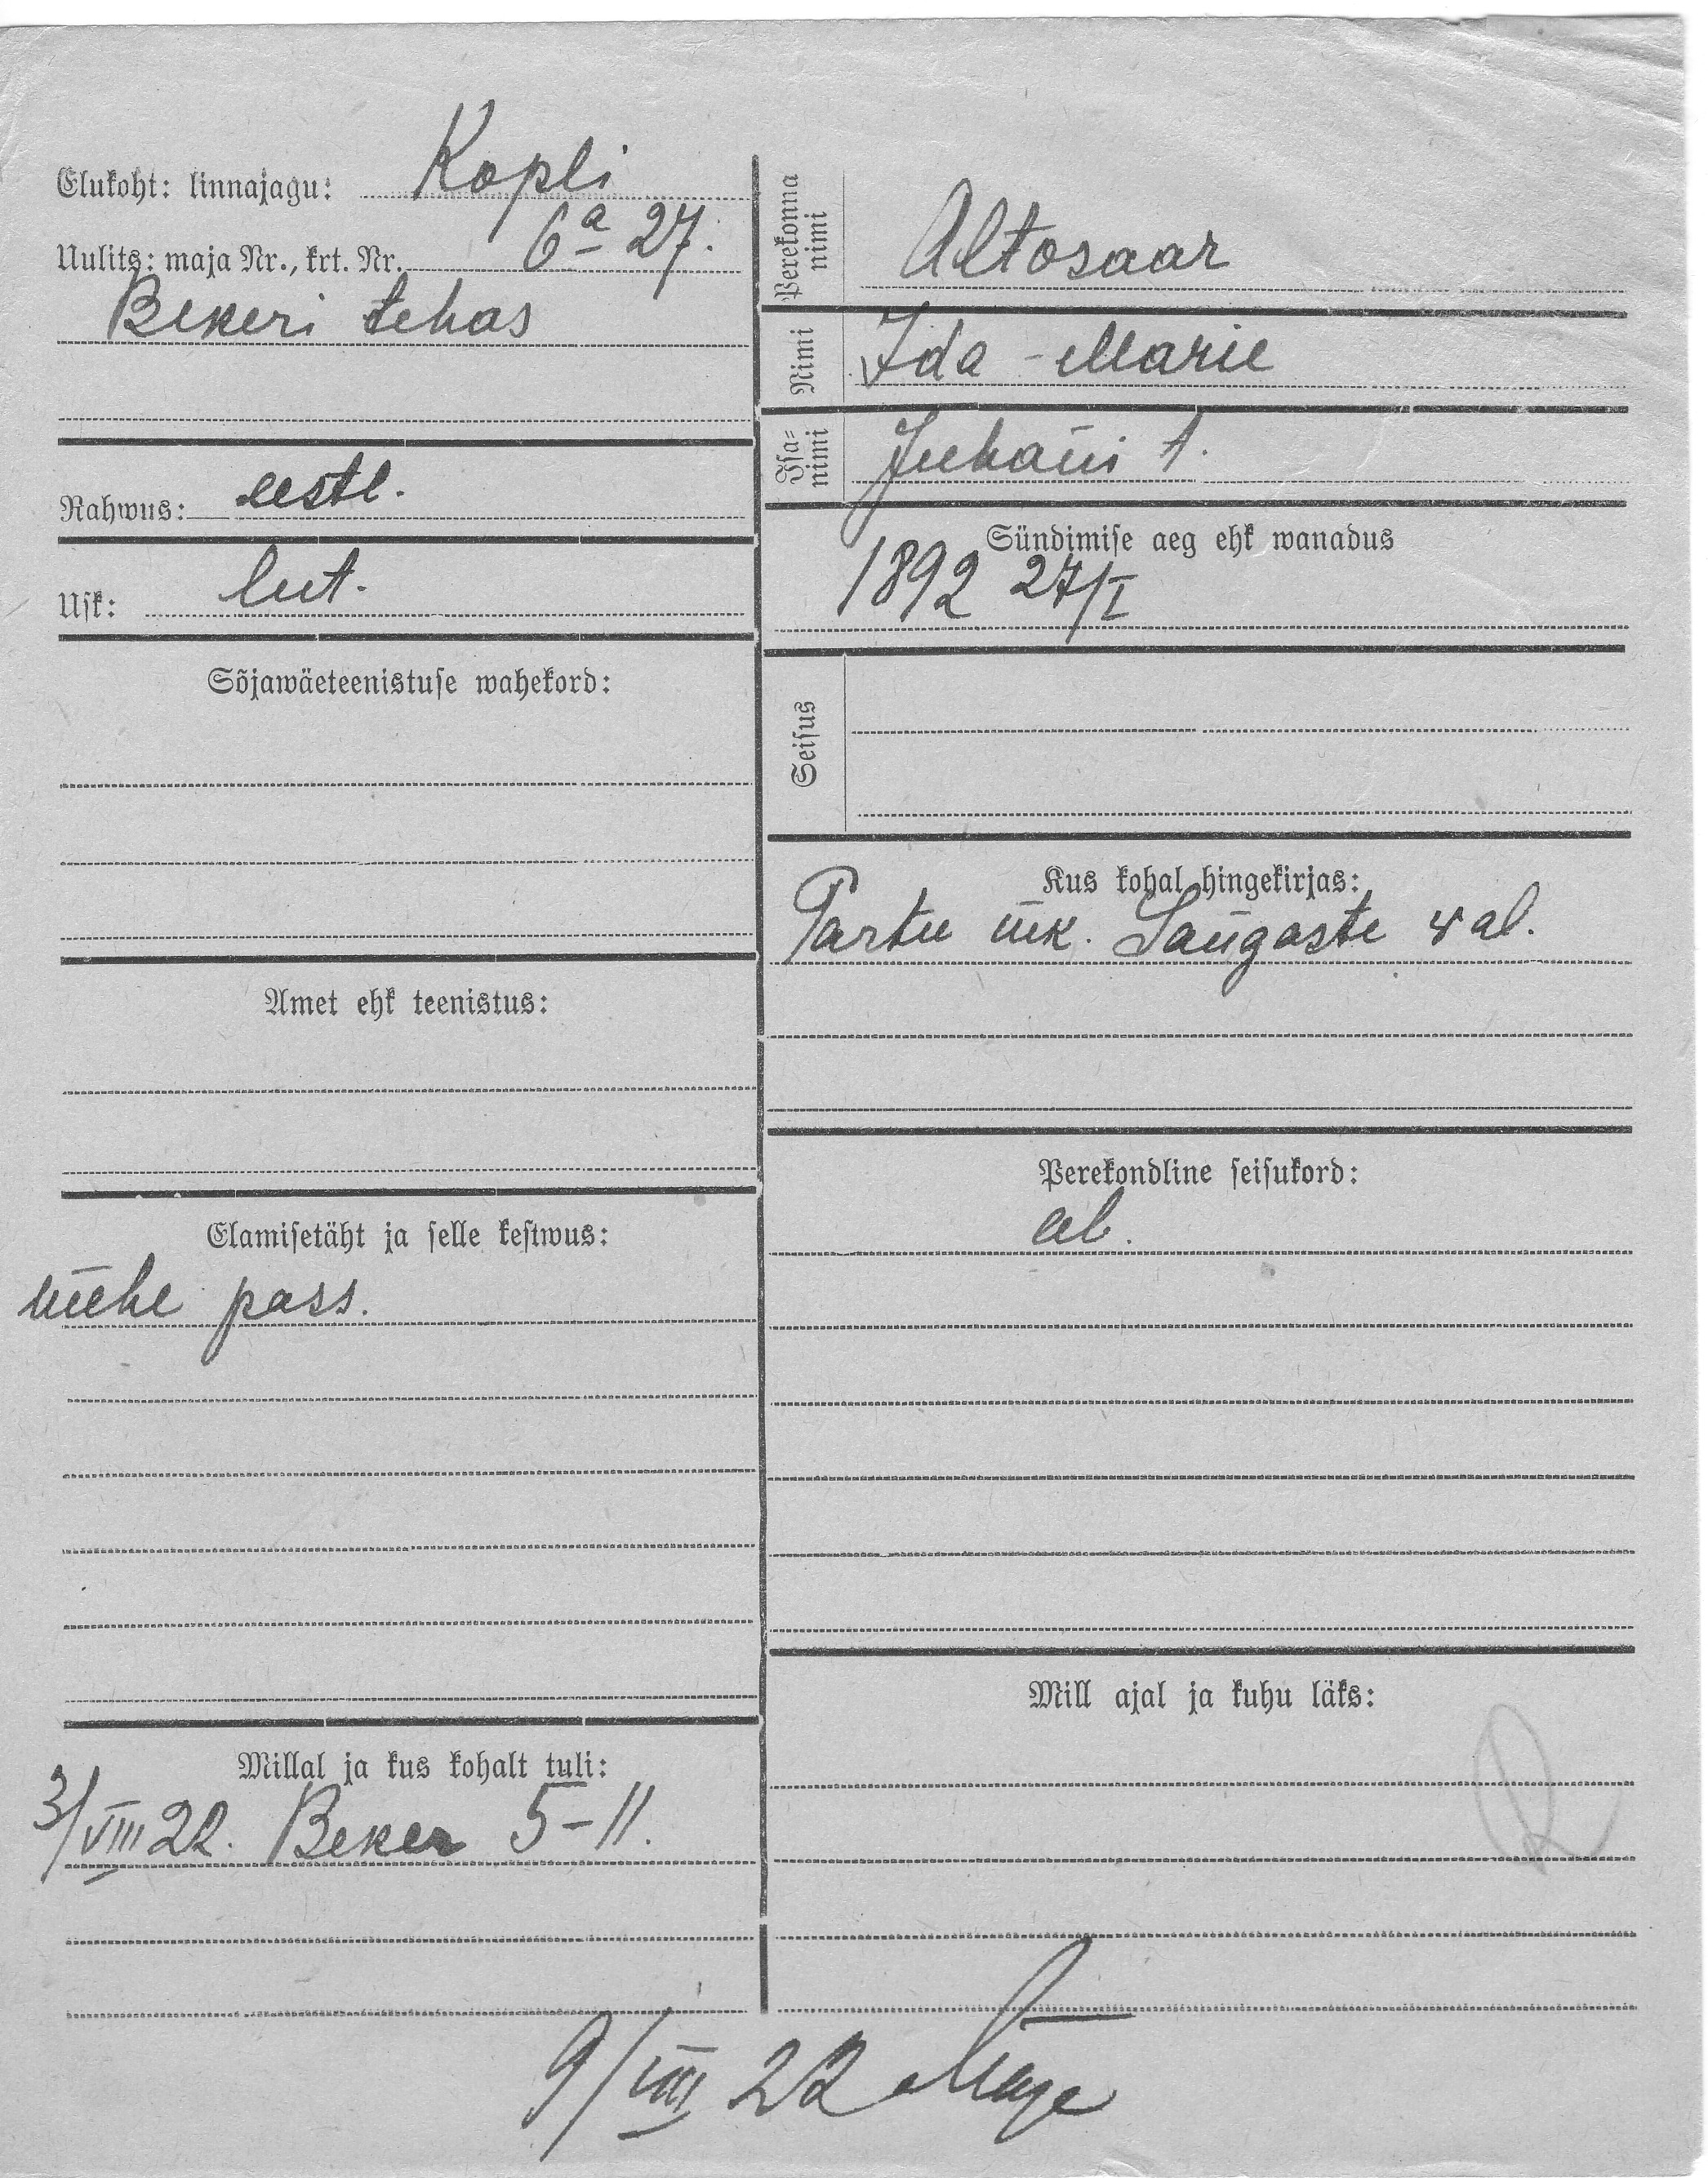 Elukoht: linnajagu: Kopli
Uulits: maja Nr., krt. Nr. 6a 27.
Bekeri tehas
Rahwus: eestl.
Usk: lut.
Sõjawäeteenistuse wahekord:
Amet ehk teenistus:
Elamisetäht ja selle kestwus:
pass.
Millal ja kus kohalt tuli:
3/VIII 22. Beker 5-11.
Perekonna
nimi
Altosaar
Nimi Ida-Marie
Isa-
nimi
Juhani t.
Sündimise aeg ehk wanadus
1892 27/I
Seisus
Kus kohal hingekirjas:
Tartu mk. Sangaste wal.
Perekondline seisukord:
ab.
Mill ajal ja kuhu läks:
9/VIII 22